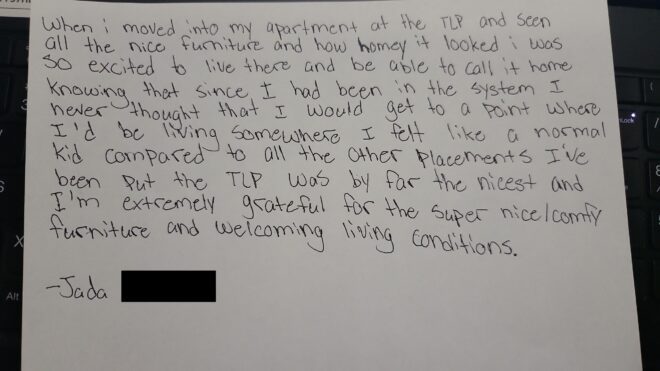 When i moved into my apartment at the TLP and seen
all the nice furniture and how homey it looked i was
so excited to live there and be able to call it home
knowing that since I had been in the system I
never thought that I would get to a point where
I'd be living somewhere I felt like a normal
kid compared to all the other placements I've
been put the TLP was by far the nicest and
I'm extremely grateful for the super nice/comfy
furniture and welcoming living conditions.
-Jada
Alt